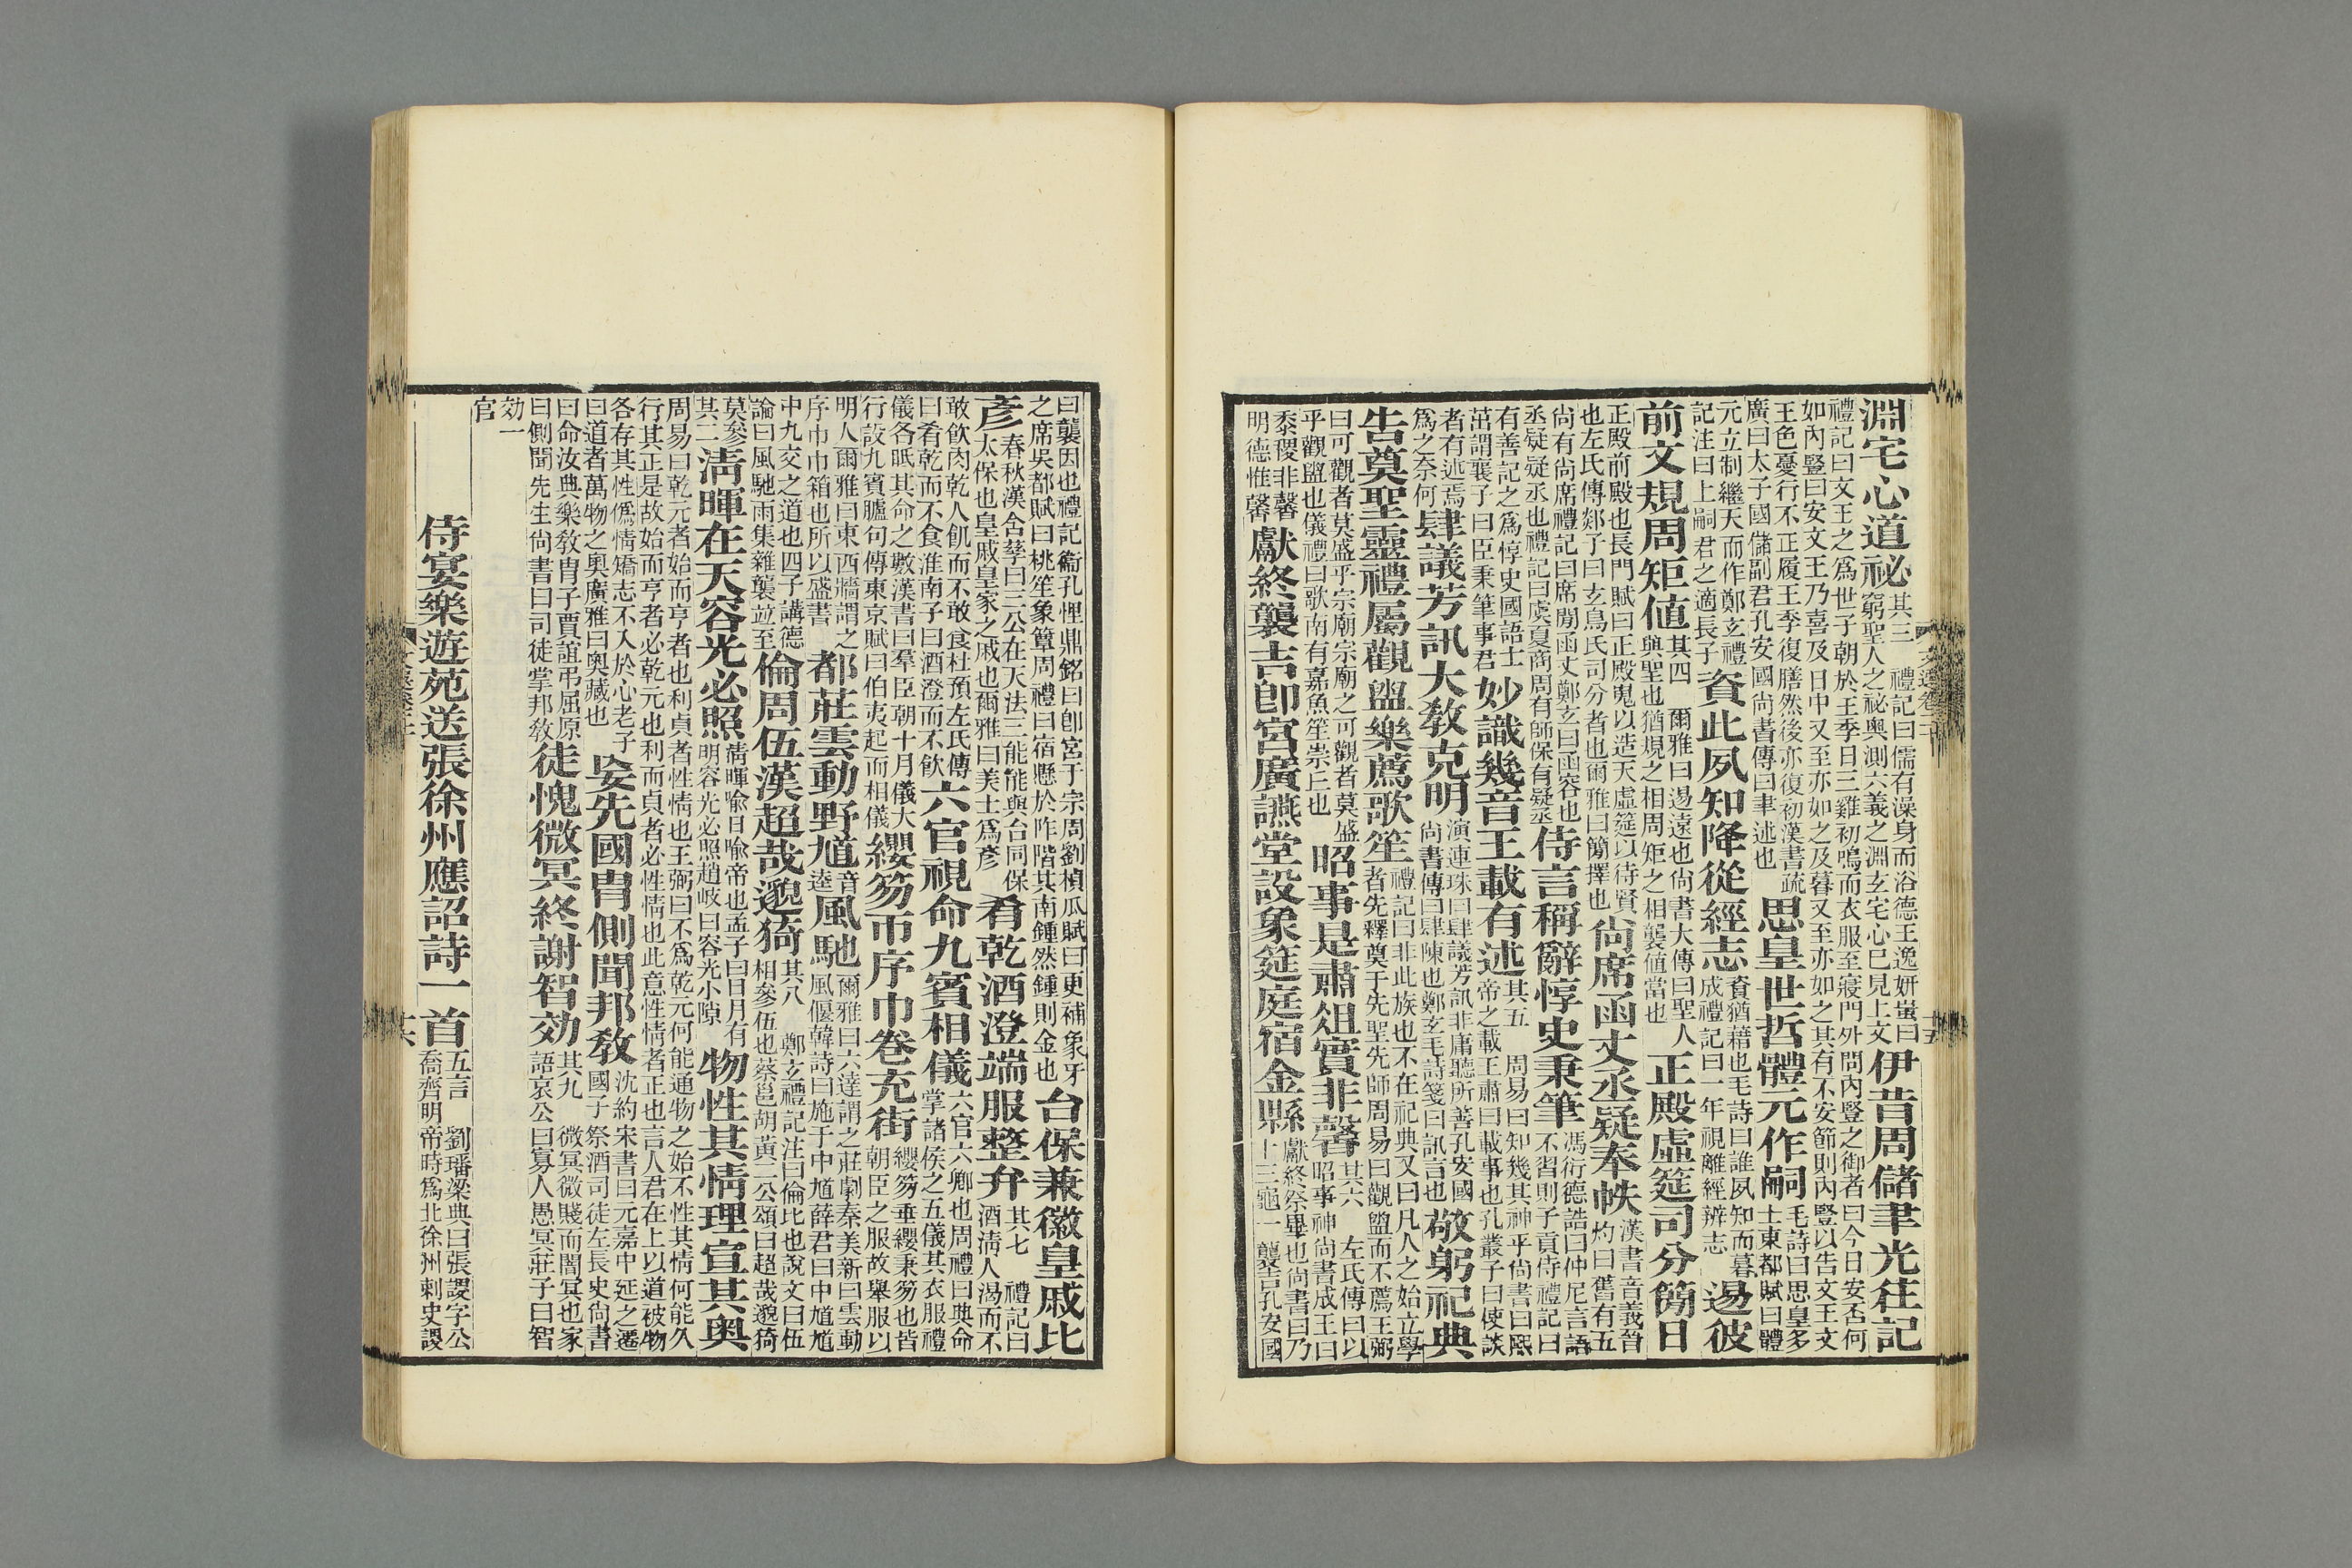 淵宅心道祕其三 禮記曰儒有澡身而浴德王逸妍蚩曰窮聖人之祕奧測六義之淵玄宅心已見上文伊昔周儲聿光往記
禮記曰文王之爲世子朝於王季日三雞初鳴而衣服至寢門外問內豎之御者曰今日安否何
如內豎曰安文王乃喜及日中又至亦如之及暮又至亦如之其有不安節則內豎以告文王文
王色憂行不正履王季復膳然後亦復初漢書疏廣曰太子國儲副君孔安國尚書傳曰聿述也思皇世哲體元作嗣毛詩曰思皇多士東都賦曰體
元立制繼天而作鄭玄禮記注曰上嗣君之適長子資此夙知降從經志資猶藉也毛詩曰誰夙知而暮成禮記曰一年視離經辨志逷彼
前文規周矩値其四 爾雅曰逷遠也尚書大傳曰聖人與聖也猶規之相周矩之相襲値當也正殿虛筵司分簡日
正殿前殿也長門賦曰正殿塊以造天虛筵以待賢也左氏傳郯子曰玄鳥氏司分者也爾雅曰簡擇也尚席函丈丞疑奉帙漢書音義晉灼曰舊有五
尚有尚席禮記曰席間函丈鄭玄曰函容也丞疑疑丞也禮記曰虞夏商周有師保有疑丞侍言稱辭惇史秉筆馮衍德誥曰仲尼言語不習則子貢侍禮記曰
有善記之爲惇史國語士茁謂襄子曰臣秉筆事君妙識幾音王載有述其五 周易曰知幾其神乎尚書曰熙帝之載王肅曰載事也孔叢子曰使談
者有述焉爲之奈何肆議芳訊大敎克明演連珠曰肆議芳訊非庸聽所善孔安國尚書傳曰肆陳也鄭玄毛詩箋曰訊言也敬躬祀典
告奠聖靈禮屬觀盥樂薦歌笙禮記曰非此族也不在祀典又曰凡人之始立學者先釋奠于先聖先師周易曰觀盥而不薦王弼
曰可觀者莫盛乎宗廟宗廟之可觀者莫盛乎觀盥也儀禮曰歌南有嘉魚笙崇丘也昭事是肅俎實非馨其六 左氏傳曰以昭事神尚書成王曰
黍稷非馨明德惟馨獻終襲吉卽宮廣讌堂設象筵庭宿金縣獻終祭畢也尚書曰乃十三龜一襲吉孔安國
曰襲因也禮記衞孔悝鼎銘曰卽宮于宗周劉楨瓜賦曰更補象牙之席吳都賦曰桃笙象簟周禮曰宿懸於阼階其南鍾然鍾則金也台保兼徽皇戚比
彥春秋漢含孳曰三公在天法三能能與台同保太保也皇戚皇家之戚也爾雅曰美士爲彥肴乾酒澄端服整弁其七 禮記曰酒淸人渴而不
敢飮肉乾人飢而不敢食杜預左氏傳曰肴乾而不食淮南子曰酒澄而不飮六官視命九賓相儀六官六卿也周禮曰典命掌諸侯之五儀其衣服禮
儀各眂其命之數漢書曰羣臣朝十月儀大行設九賓臚句傳東京賦曰伯夷起而相儀纓笏帀序巾卷充街纓笏垂纓秉笏也皆朝臣之服故舉服以
明人爾雅曰東西牆謂之序巾巾箱也所以盛書都莊雲動野馗音逵風馳爾雅曰六達謂之莊劇秦美新曰雲動風偃韓詩曰施于中馗薛君曰中馗馗
中九交之道也四子講德論曰風馳雨集雜襲竝至倫周伍漢超哉邈猗其八 鄭玄禮記注曰倫比也說文曰伍相參伍也蔡邕胡黃二公頌曰超哉邈猗
莫參其二淸暉在天容光必照淸暉喻日喻帝也孟子曰日月有明容光必照趙岐曰容光小隙物性其情理宣其奥
周易曰乾元者始而亨者也利貞者性情也王弼曰不爲乾元何能通物之始不性其情何能久
行其正是故始而亨者必乾元也利而貞者必性情也此意性情者正也言人君在上以道被物
各存其性僞情矯志不入於心老子曰道者萬物之奧廣雅曰奧藏也妄先國冑側聞邦敎沈約宋書曰元嘉中延之遷國子祭酒司徒左長史尚書
曰命汝典樂敎冑子賈誼弔屈原曰側聞先生尚書曰司徒掌邦敎徒愧微冥終謝智効其九 微冥微賤而闇冥也家語哀公曰寡人愚冥莊子曰智
効一官
侍宴樂遊苑送張徐州應詔詩一首五言 劉璠梁典曰張謖字公喬齊明帝時爲北徐州刺史謖